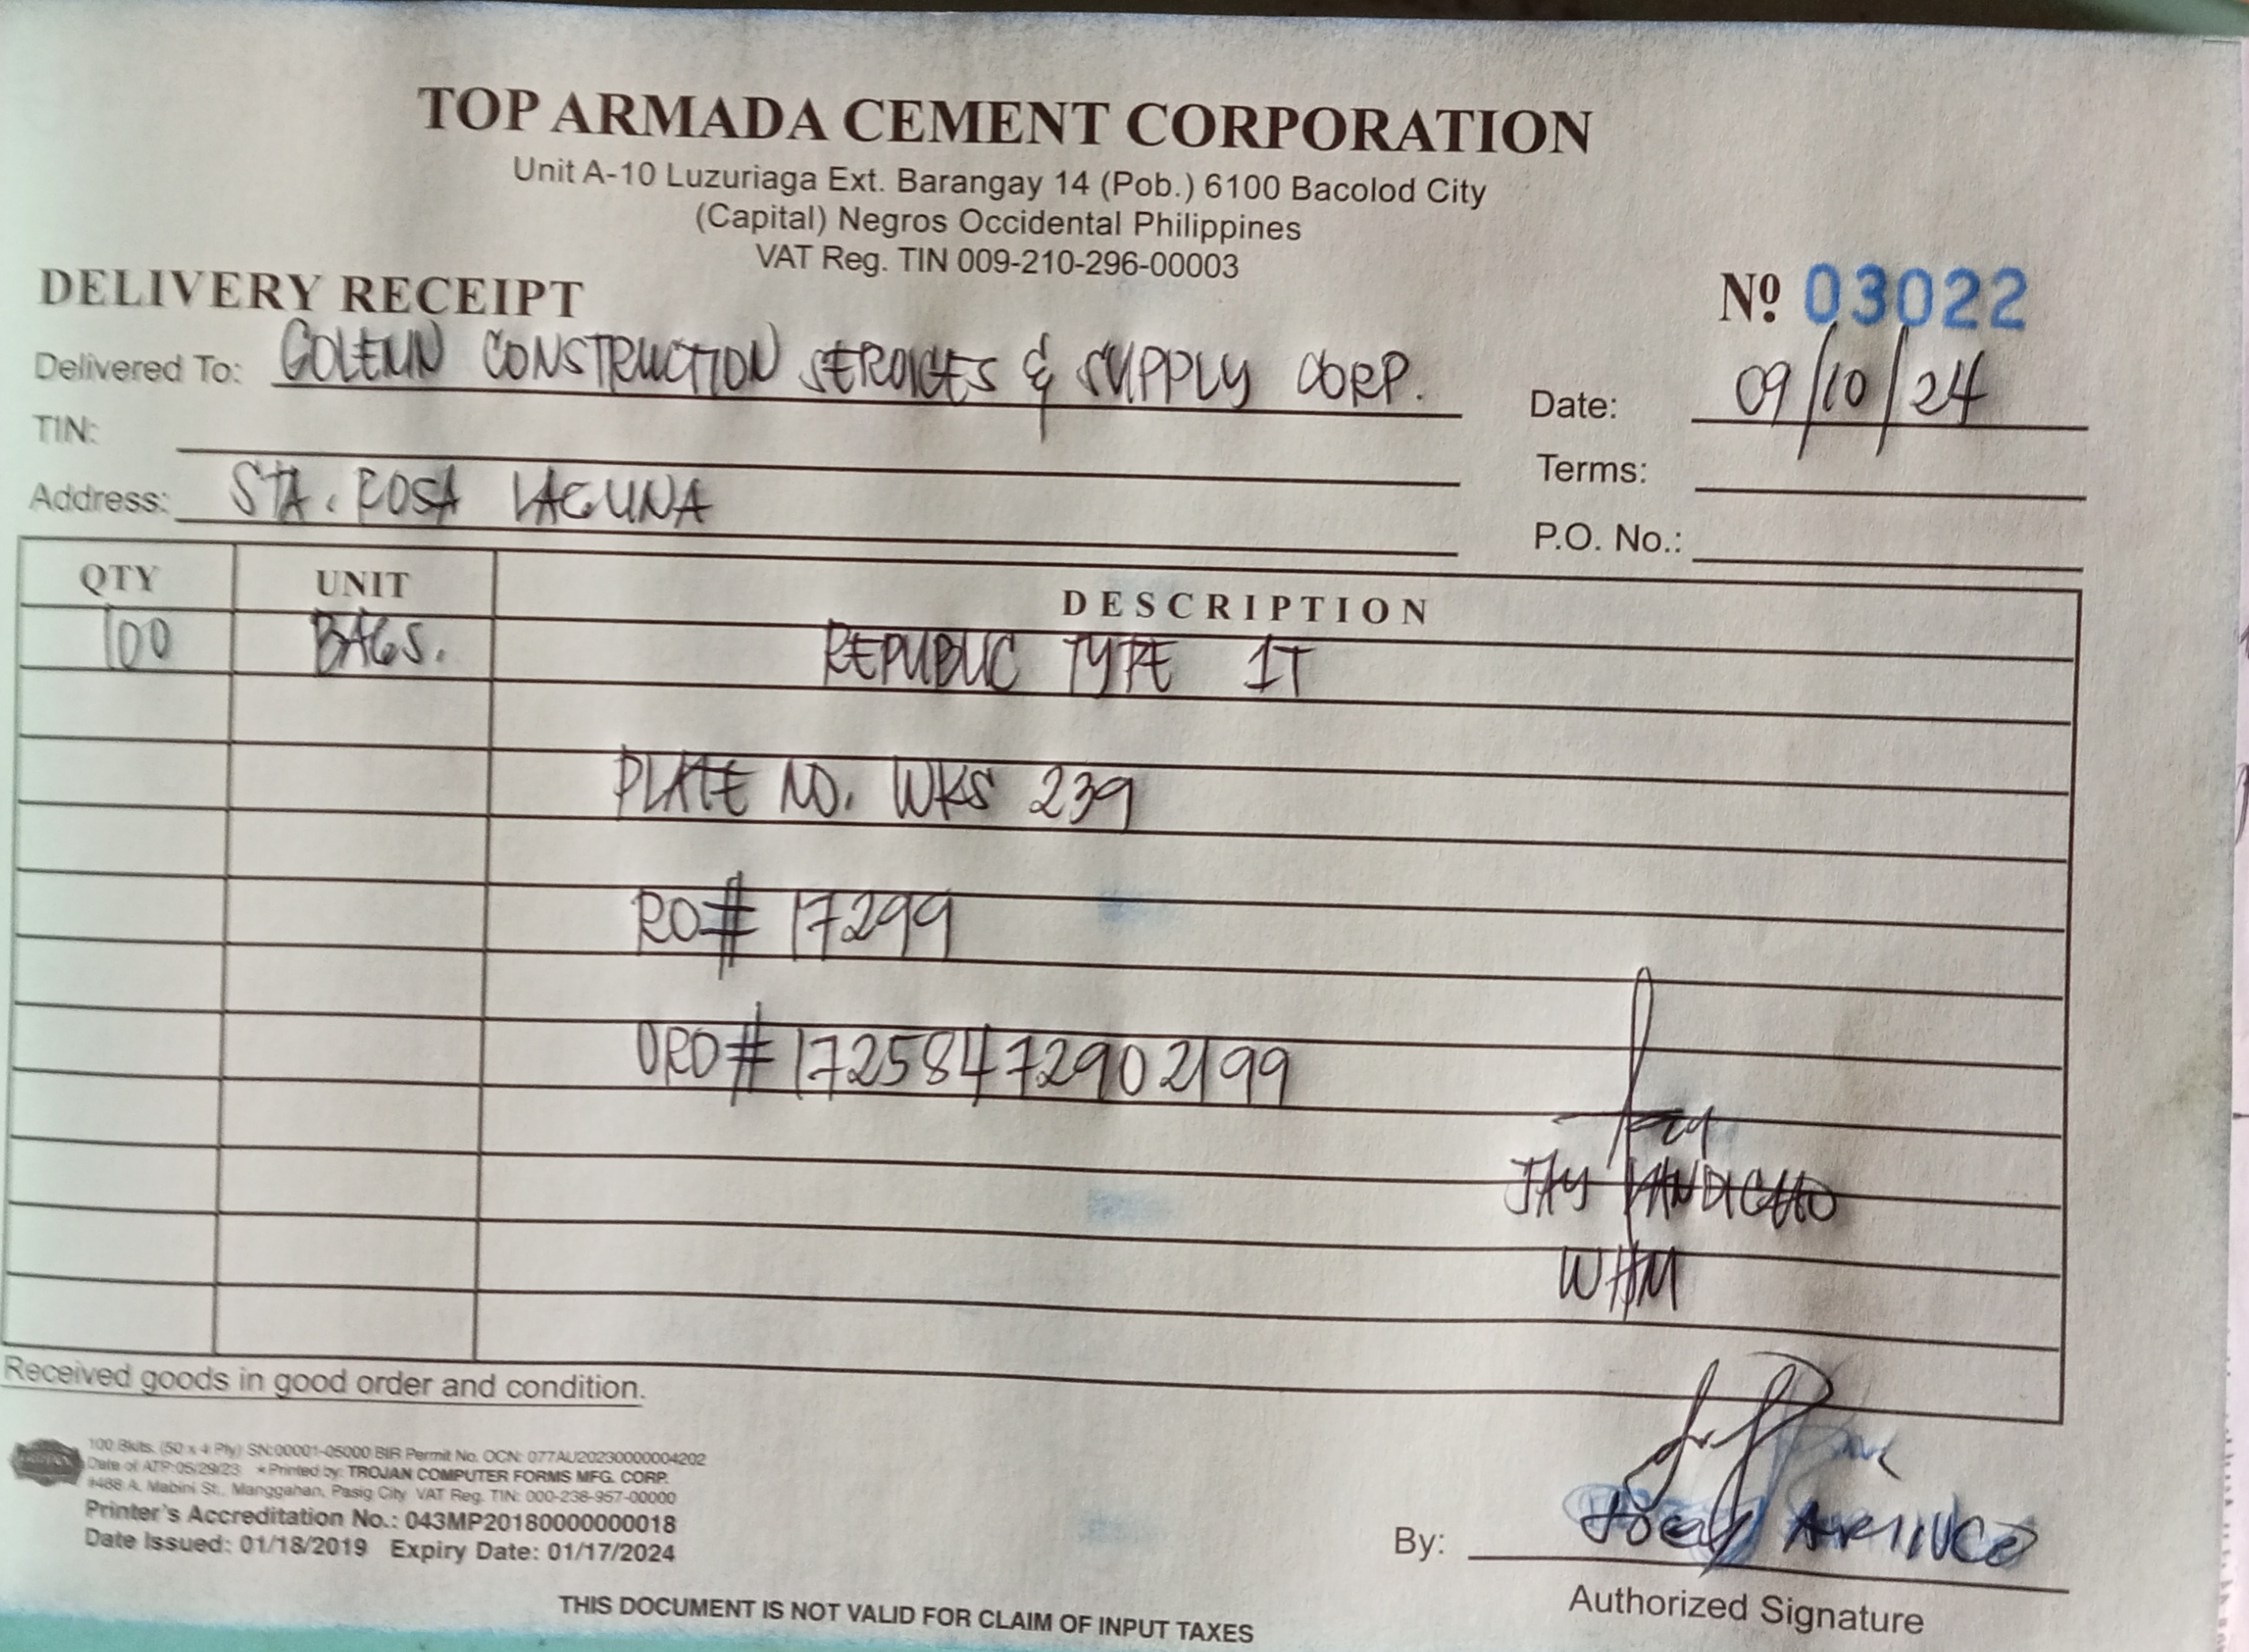 TOP ARMADA CEMENT CORPORATION
Unit A-10 Luzuriaga Ext. Barangay 14 (Pob.) 6100 Bacolod City
(Capital) Negros Occidental Philippines
VAT Reg. TIN 009-210-296-00003
DELIVERY RECEIPT
Nº 03022
Delivered To: GOLENN CONSTRUCTION SERVICES & SUPPLY CORP.
Date: 09/10/24
TIN:
Terms:
Address: STA. ROSA LAGUNA
P.O. No.:
QTY UNIT DESCRIPTION
100 BAGS. REPUBLIC TYPE 1T
PLATE NO. WKS 239
RO# 17299
ORO# 17258472902199
JAY
WHM
Received goods in good order and condition.
100 Bklts. (50 x 4 Ply) SN:00001-05000 BIR Permit No. OCN: 077AU20230000004202
Date of ATP:05/29/23 • Printed by: TROJAN COMPUTER FORMS MFG. CORP.
#488 A. Mabini St., Manggahan, Pasig City VAT Reg. TIN: 000-238-957-00000
Printer's Accreditation No.: 043MP20180000000018
Date Issued: 01/18/2019 Expiry Date: 01/17/2024
By:
Authorized Signature
THIS DOCUMENT IS NOT VALID FOR CLAIM OF INPUT TAXES